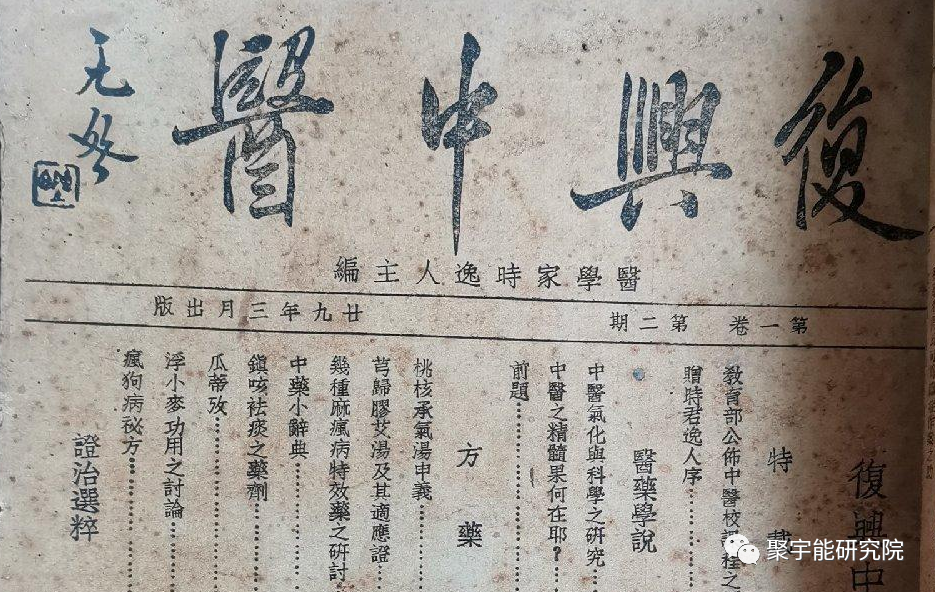 復興中醫
无咎
醫學家時逸人主編
第一卷 第二期
廿九年三月出版
復興中
特載
教育部公佈中醫校課程之
贈時君逸人序
醫藥學說
中醫氣化與科學之研究
中醫之精髓果何在耶?
前題
方藥
桃核承氣湯申義
芎歸膠艾湯及其適應證
幾種麻瘋病特效藥之研討
中藥小辭典
鎮咳祛痰之藥劑
瓜蒂攷
浮小麥功用之討論
瘋狗病祕方
證治選粹
聚宇能研究院